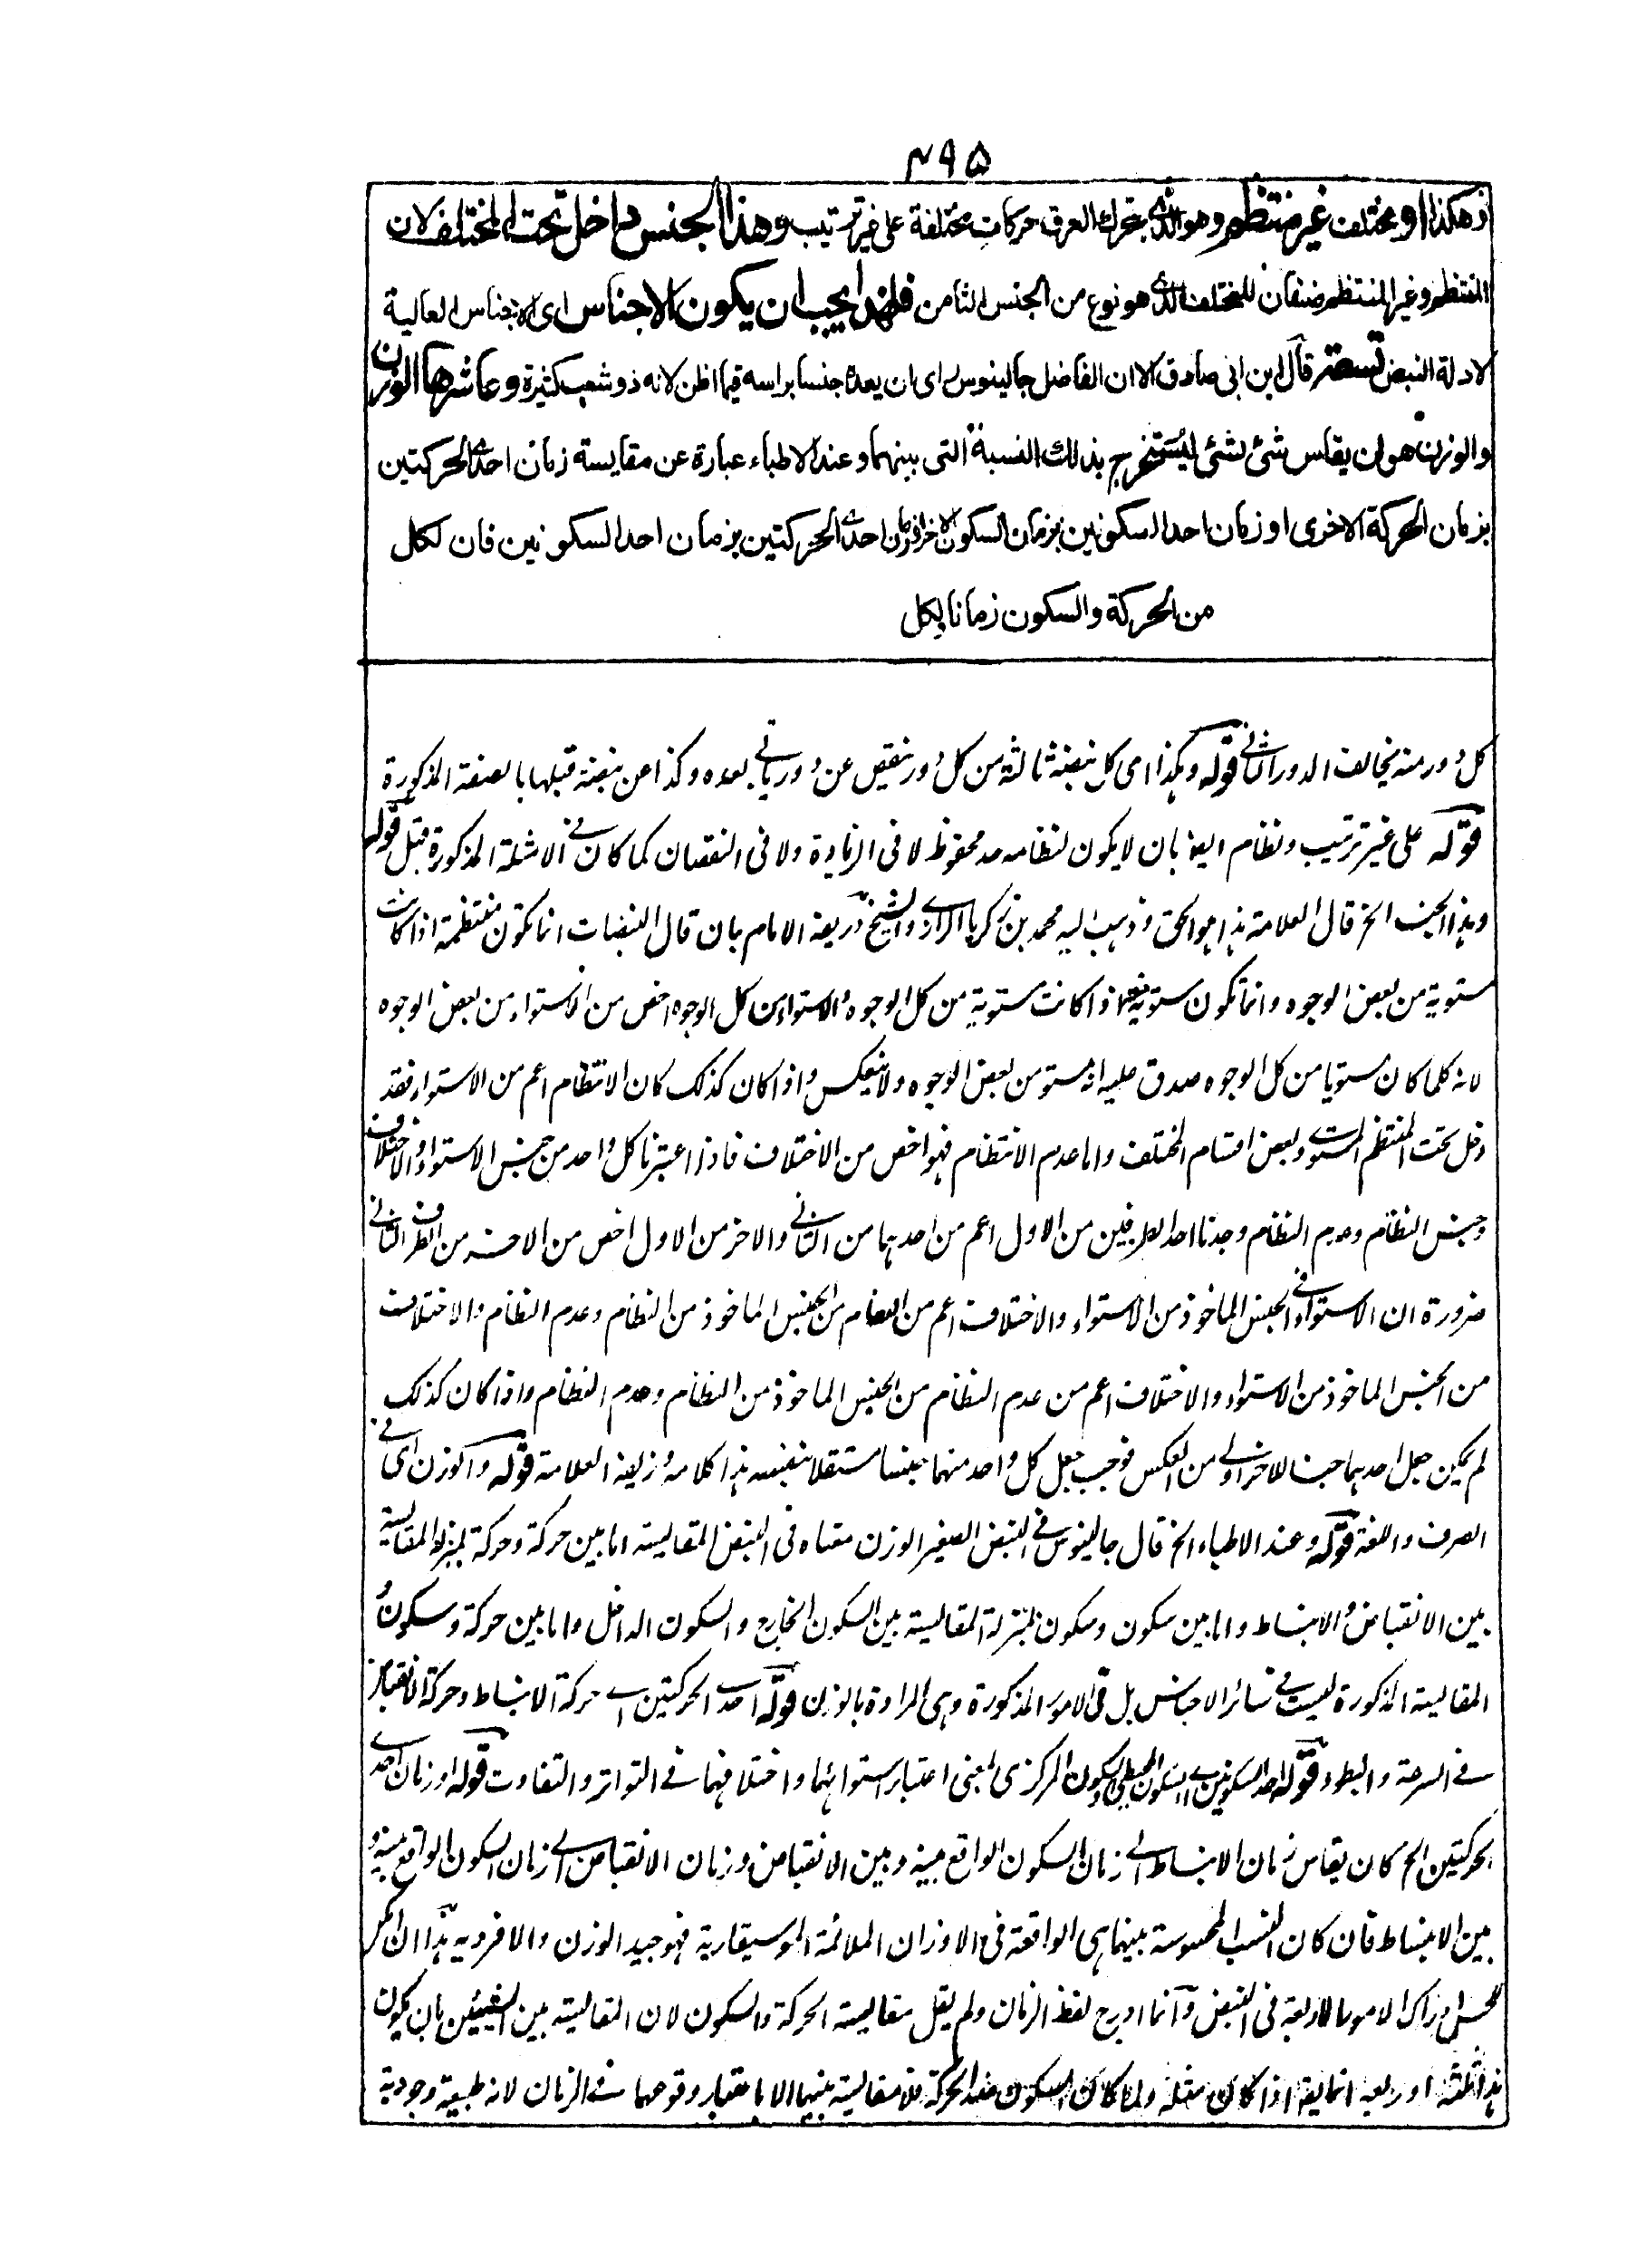 ٤٩٥
ذ هكذا او مختلف غير منتظم وهو الذى يتحرك العرق حركات مختلفة على غير ترتيب وهذا الجنس داخل تحت المختلف لان
المنتظم وغير المنتظم صنفان للمختلف الذى هو نوع من الجنس الثامن فلهذا يجب ان يكون الاجناس اى الاجناس العالية
لادلة النبض تسعة قال ابن ابى صادق الا ان الفاضل جالينوس راى ان يعده جنسا براسه فيما اظن لانه ذو شعب كثيرة وعاشرها الوزن
والوزن هو ان يقاس شئ بشئ ليستخرج بذلك النسبة التى بينهما وعند الاطباء عبارة عن مقايسة زمان احدى الحركتين
بزمان الحركة الاخرى او زمان احد السكونين بزمان السكون الاخر او زمان احدى الحركتين بزمان احد السكونين فان لكل
من الحركة والسكون زمانا لكل
كل دور منه يخالف الدور الثانى قوله وهكذا اى كل نبضة ثالثة من كل دور ينقص عن دور ياتى بعده وكذا عن نبضة قبلها بالصفة المذكورة
قوله على غير ترتيب ونظام ايضا بان لا يكون لنظامه حد محفوظ لا فى الزيادة ولا فى النقصان كما كان فى الامثلة المذكورة قبل قوله
وهذا الجنس الخ قال العلامة هذا هو الحق وذهب اليه محمد بن زكريا الرازى والشيخ وزيفه الامام بان قال النبضات انما تكون منتظمة اذا كانت
مستوية من بعض الوجوه وانما تكون مستوية اذا كانت مستوية من كل الوجوه والاستواء من كل الوجوه اخص من الاستواء من بعض الوجوه
لانه كلما كان مستويا من كل الوجوه صدق عليه انه مستو من بعض الوجوه ولا ينعكس واذا كان كذلك كان الانتظام اعم من الاستواء فقد
دخل تحت المنتظم المستوى وبعض اقسام المختلف واما عدم الانتظام فهو اخص من الاختلاف فاذا اعتبرنا كل واحد من جنس الاستواء والاختلاف
وجنس النظام وعدم النظام وجدنا احد الطرفين من الاول اعم من احدهما من الثانى والاخر من الاول اخص من الاخر من الطرف الثانى
ضرورة ان الاستواء فى الجنس الماخوذ من الاستواء والاختلاف اعم من النظام من الجنس الماخوذ من النظام وعدم النظام والاختلاف
من الجنس الماخوذ من الاستواء والاختلاف اعم من عدم النظام من الجنس الماخوذ من النظام وعدم النظام واذا كان كذلك
لم يكن جعل احدهما جنسا للاخر اولى من العكس فوجب جعل كل واحد منهما جنسا مستقلا بنفسه هذا كلامه وزيفه العلامة قوله والوزن اى فى
الصرف واللغة قوله وعند الاطباء الخ قال جالينوس فى النبض الصغير الوزن معناه فى النبض المقايسة اما بين حركة وحركة بمنزلة المقايسة
بين الانقباض والانبساط واما بين سكون وسكون بمنزلة المقايسة بين السكون الخارج والسكون الداخل واما بين حركة وسكون و
المقايسة المذكورة ليست فى سائر الاجناس بل فى الامور المذكورة وهى المرادة بالوزن قوله احدى الحركتين اى حركة الانبساط وحركة الانقباض
فى السرعة والبطوء قوله احد السكونين اى السكون المحيطى والسكون المركزى اعنى اعتبار استوائهما واختلافهما فى التواتر والتفاوت قوله او زمان احدى
الحركتين الخ كان يقاس زمان الانبساط الى زمان السكون الواقع بينه وبين الانقباض وزمان الانقباض الى زمان السكون الواقع بينه و
بين الانبساط فان كان النسب المحسوسة بينهما هى الواقعة فى الاوزان الملائمة الموسيقارية فهو جيد الوزن والا فرديه هذا ان امكن
للحس ادراك الامور الاربعة فى النبض وانما ادرج لفظ الزمان ولم يقل مقايسة الحركة والسكون لان المقايسة بين الشيئين بان يكون
هذا ثلثه او ربعه انما يقع اذا كان مثله ولما كان السكون ضد الحركة فلا مقايسة بينهما الا باعتبار وقوعهما فى الزمان لانه طبيعة وجودية